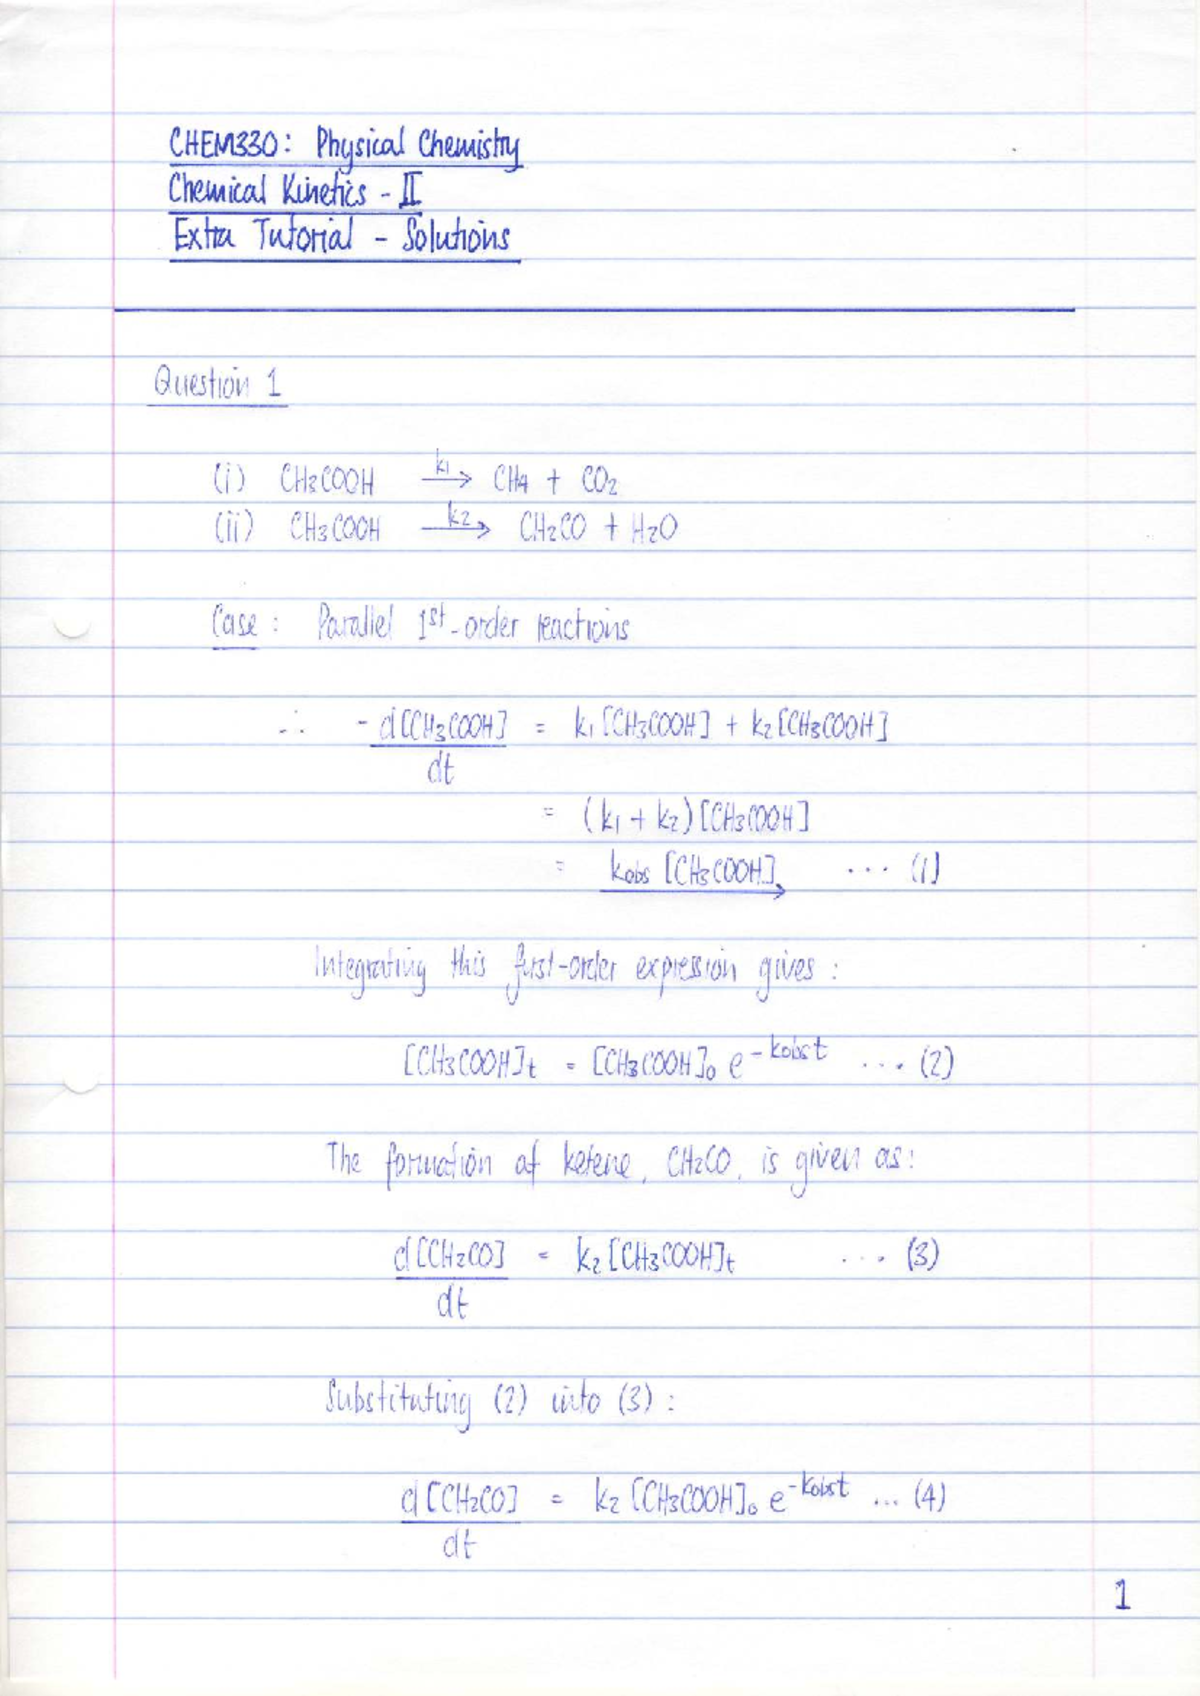 CHEM330: Physical Chemistry
Chemical Kinetics - II
Extra Tutorial - Solutions
Question 1
(i) CH3COOH k1→ CH4 + CO2
(ii) CH3COOH k2→ CH2CO + H2O
Case: Parallel 1st-order reactions
∴ - d[CH3COOH] = k1[CH3COOH] + k2[CH3COOH]
dt
= (k1 + k2)[CH3COOH]
= kobs [CH3COOH] ... (1)
Integrating this first-order expression gives:
[CH3COOH]t = [CH3COOH]0 e^-kobst ... (2)
The formation of ketene, CH2CO, is given as:
d[CH2CO] = k2[CH3COOH]t ... (3)
dt
Substituting (2) into (3):
d[CH2CO] = k2 [CH3COOH]0 e^-kobst ... (4)
dt
1